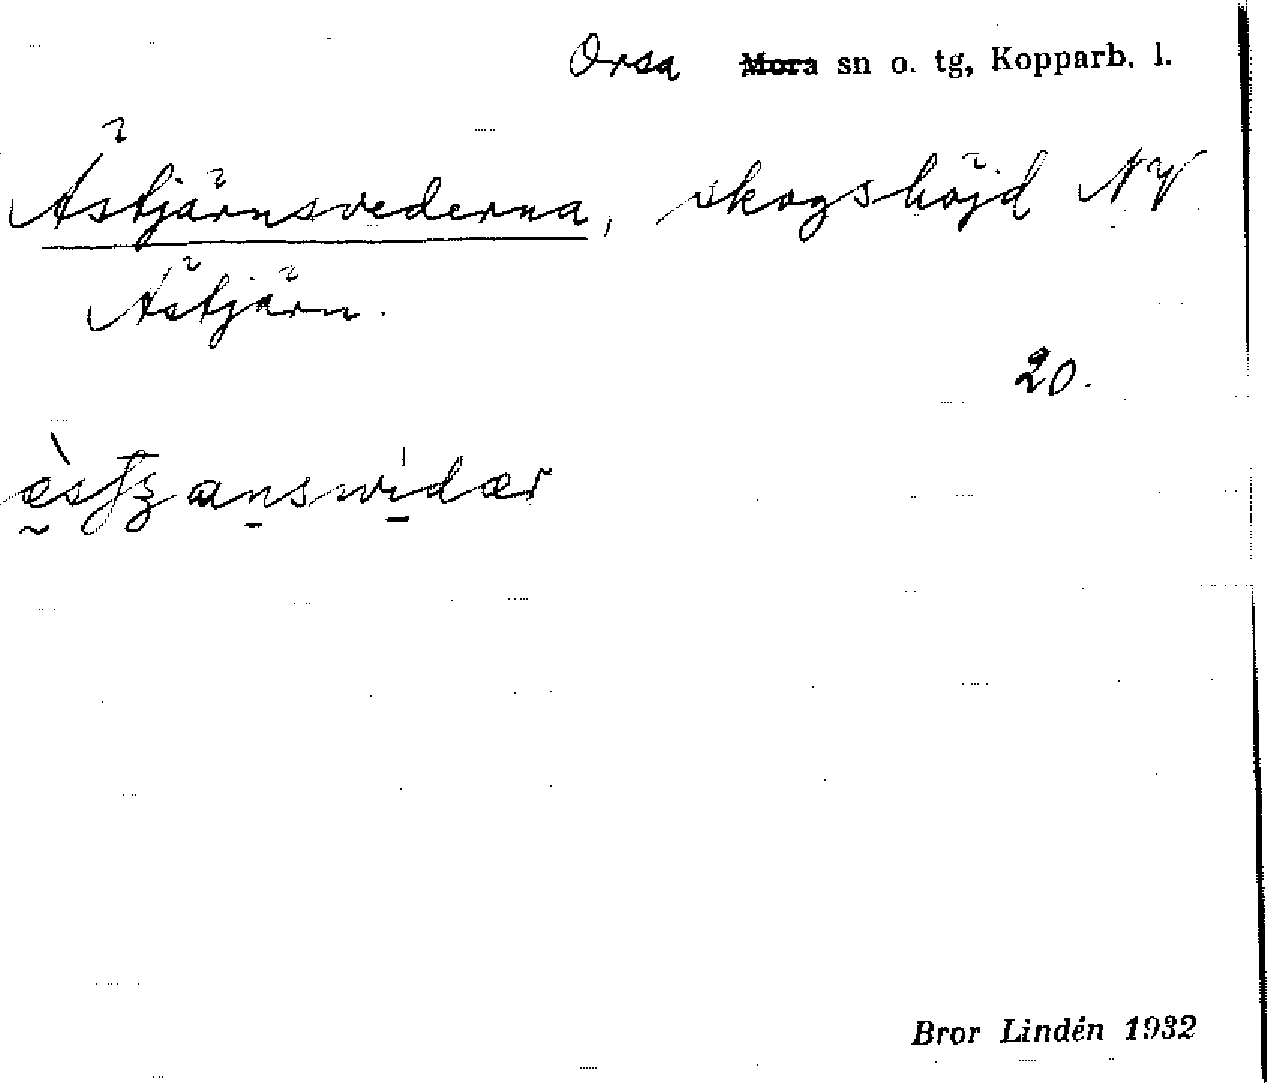 Orsa Mora sn o. tg, Kopparb. l.
Ästjärnsvederna, skogshöjd NV
Ästjärn.
20.
Bror Lindén 1932